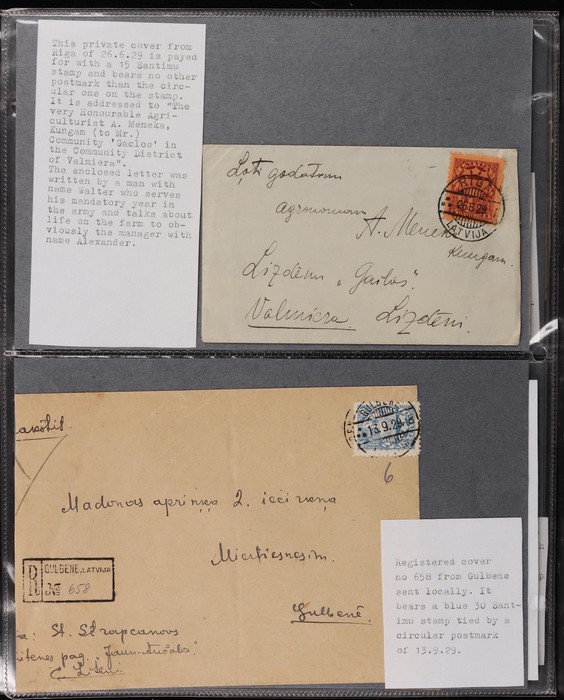 This private cover from
Riga of 26.6.29 is payed
for with a 15 Santimu
stamp and bears no other
postmark than the circ-
ular one on the stamp.
It is addressed to "The
very Honourable Agri-
culturist A. Meneka,
Kungam (to Mr.)
Community 'Gaelos' in
the Community District
of Valmiera".
The enclosed letter was
written by a man with
name Walter who serves
his mandatory year in
the army and talks about
life on the farm to ob-
viously the manager with
name Alexander.
RIGA
26.6.29
LATVIJA
Ļoti godātam
agronomam A. Menek
Kungam.
Lizdēni „Gailos".
Valmiera Lizdēni.
GULBENE
13.9.29
6
Madonas apriņķa 2. iecirkņa
Miertiesnesim.
Gulbenē.
R GULBENE, LATVIJA
№ 658
St. Strapcanovs
pag.
Registered cover
no 658 from Gulbene
sent locally. It
bears a blue 30 Sant-
imu stamp tied by a
circular postmark
of 13.9.29.